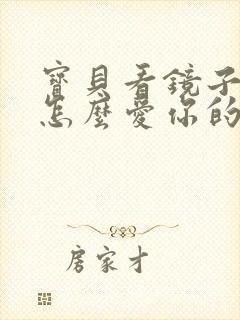 寶貝看鏡子
怎麼愛你的
房家才